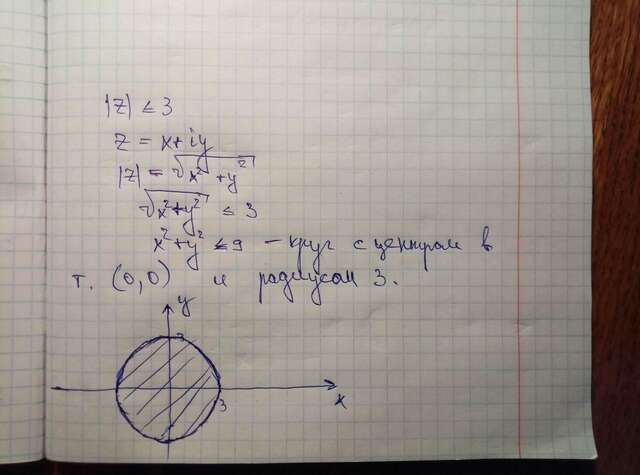 |z| ≤ 3
z = x+iy
|z| = √x² + y²
√x²+y² ≤ 3
x²+y² ≤ 9 – круг с центром в
т. (0,0) и радиусом 3.
y
3
3
x